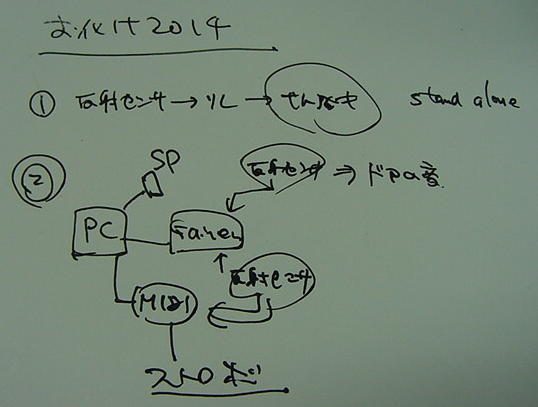 お化け2014
① 反射センサ → リレ → stand alone
SP
② 反射センサ ⇒ ドアの音
PC Gainer
反射センサ
MIDI
ストロボ